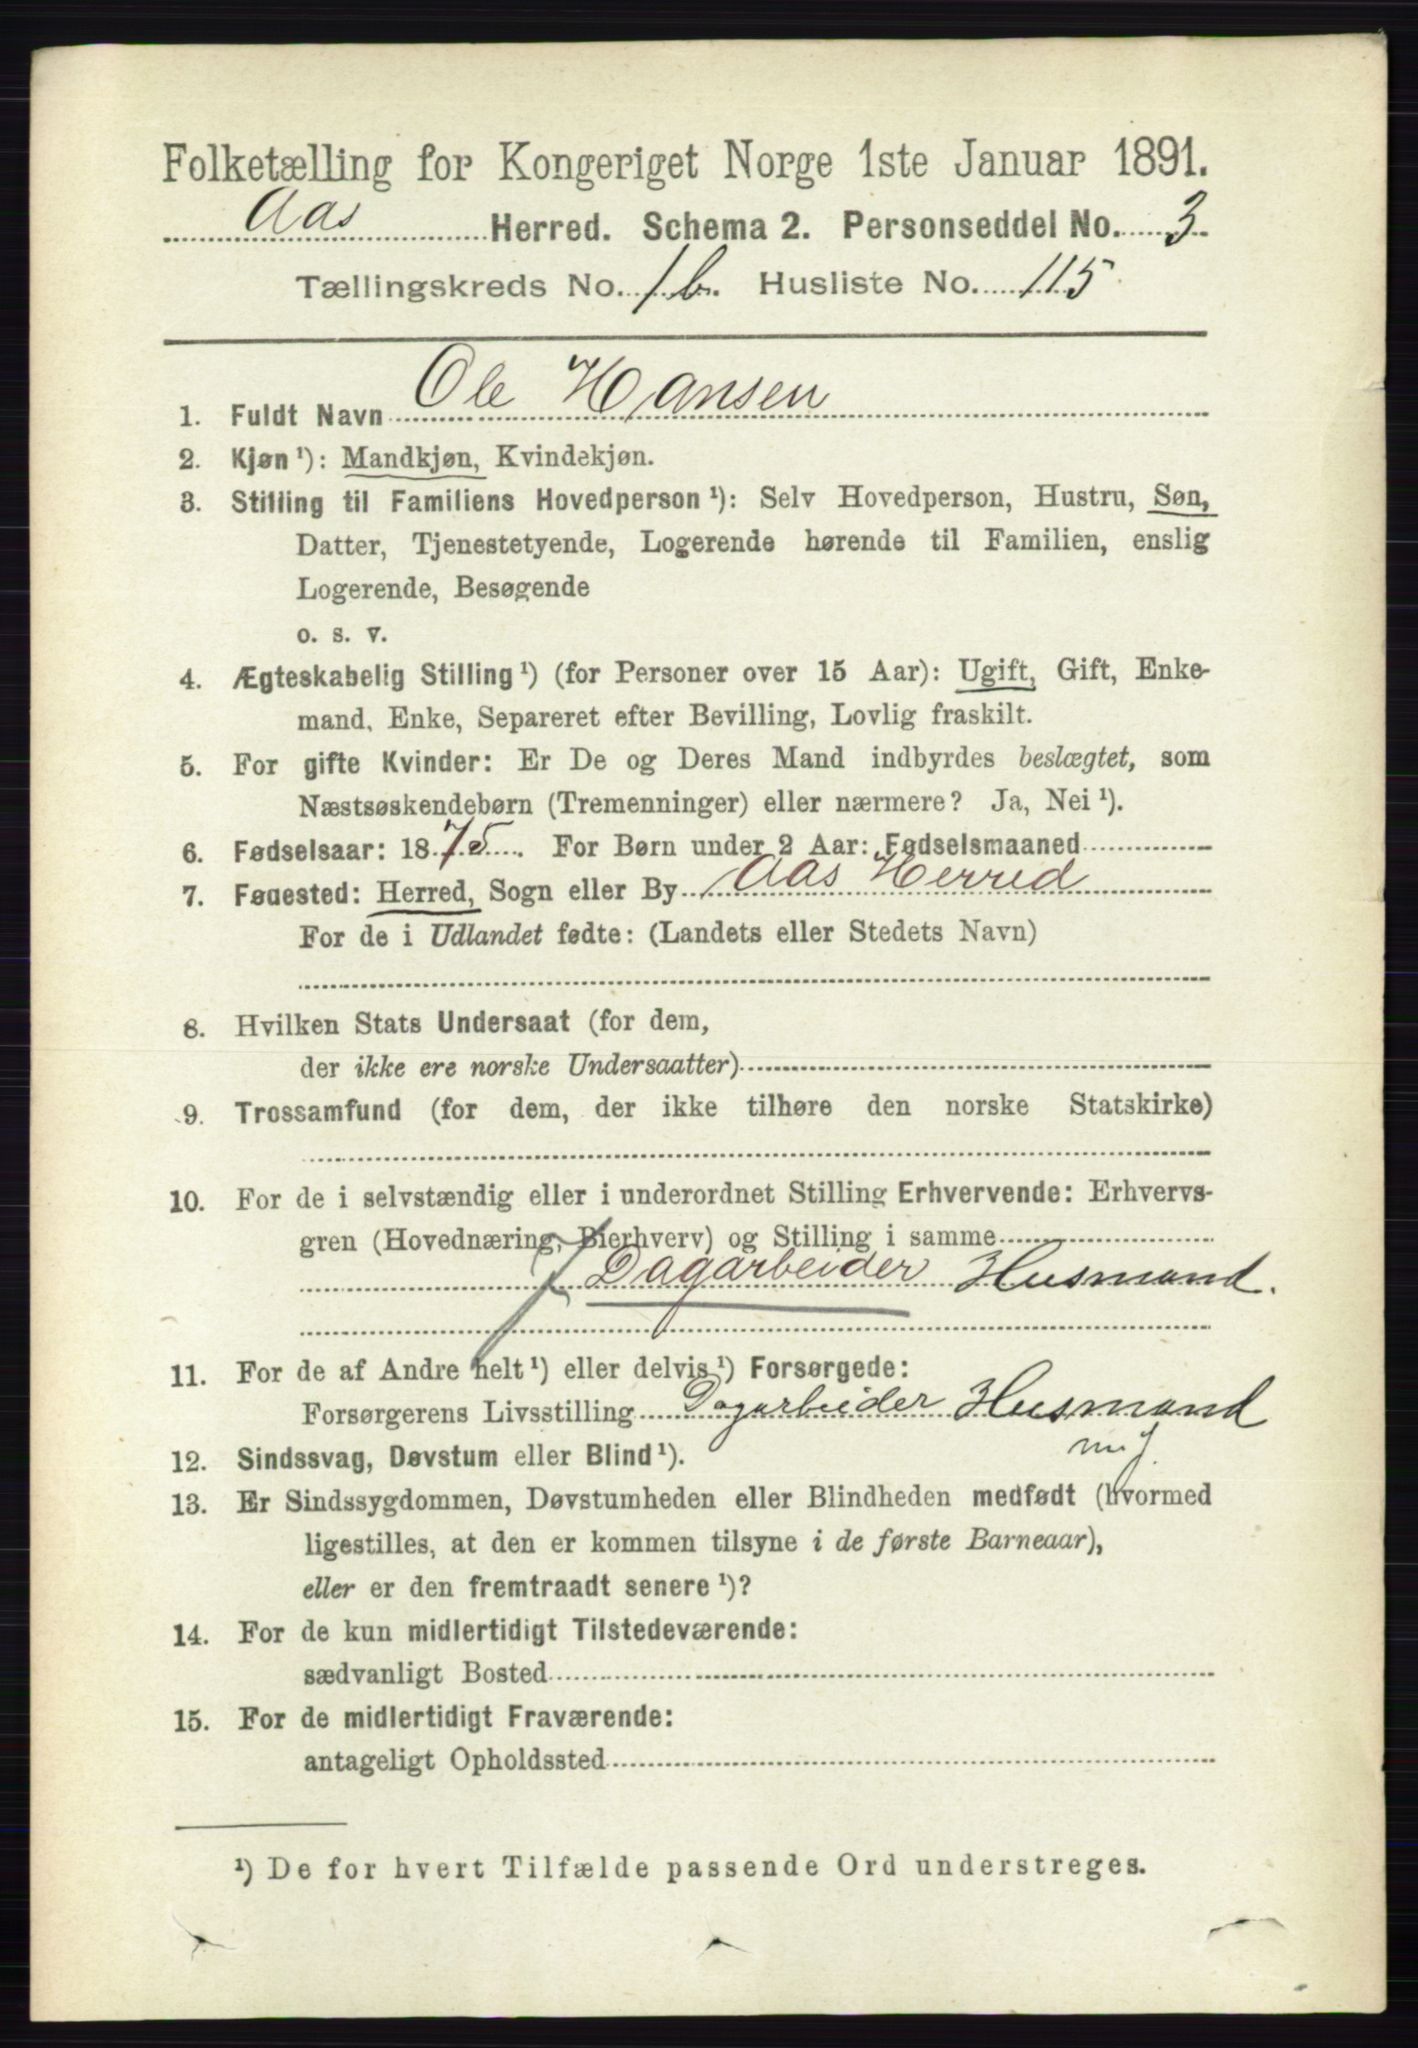 Folketælling for Kongeriget Norge 1ste Januar 1891.
Aas Herred. Schema 2. Personseddel No. 3
Tællingskreds No. 1b. Husliste No. 115
1. Fuldt Navn Ole Hansen
2. Kjøn ¹): Mandkjøn, Kvindekjøn.
3. Stilling til Familiens Hovedperson ¹): Selv Hovedperson, Hustru, Søn,
Datter, Tjenestetyende, Logerende hørende til Familien, enslig
Logerende, Besøgende
o. s. v.
4. Ægteskabelig Stilling ¹) (for Personer over 15 Aar): Ugift, Gift, Enke-
mand, Enke, Separeret efter Bevilling, Lovlig fraskilt.
5. For gifte Kvinder: Er De og Deres Mand indbyrdes beslægtet, som
Næstsøskendebørn (Tremenninger) eller nærmere? Ja, Nei ¹).
6. Fødselsaar: 1875. For Børn under 2 Aar: Fødselsmaaned
7. Fødested: Herred, Sogn eller By Aas Herred
For de i Udlandet fødte: (Landets eller Stedets Navn)
8. Hvilken Stats Undersaat (for dem,
der ikke ere norske Undersaatter)
9. Trossamfund (for dem, der ikke tilhøre den norske Statskirke)
10. For de i selvstændig eller i underordnet Stilling Erhvervende: Erhvervs-
gren (Hovednæring, Bierhverv) og Stilling i samme
Dagarbeider Husmand.
11. For de af Andre helt ¹) eller delvis ¹) Forsørgede:
Forsørgerens Livsstilling Dagarbeider Husmand
m. J.
12. Sindssvag, Døvstum eller Blind ¹).
13. Er Sindssygdommen, Døvstumheden eller Blindheden medfødt (hvormed
ligestilles, at den er kommen tilsyne i de første Barneaar),
eller er den fremtraadt senere ¹)?
14. For de kun midlertidigt Tilstedeværende:
sædvanligt Bosted
15. For de midlertidigt Fraværende:
antageligt Opholdssted
¹) De for hvert Tilfælde passende Ord understreges.